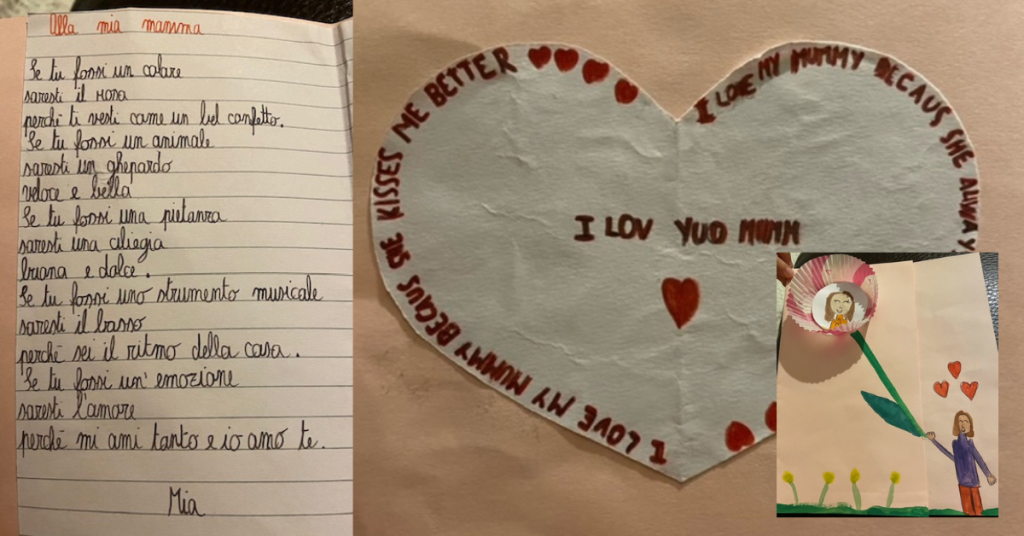 Alla mia mamma
Se tu fossi un colore
saresti il rosa
perchè ti vesti come un bel confetto.
Se tu fossi un animale
saresti un ghepardo
veloce e bella
Se tu fossi una pietanza
saresti una ciliegia
buona e dolce.
Se tu fossi uno strumento musicale
saresti il basso
perchè sei il ritmo della casa.
Se tu fossi un'emozione
saresti l'amore
perchè mi ami tanto e io amo te.
Mia
I LOVE MY MUMMY BECAUS SHE ALWAY
I LOVE MY MUMMY BECAUS SHE KISSES ME BETTER
I LOV YUO MUMM